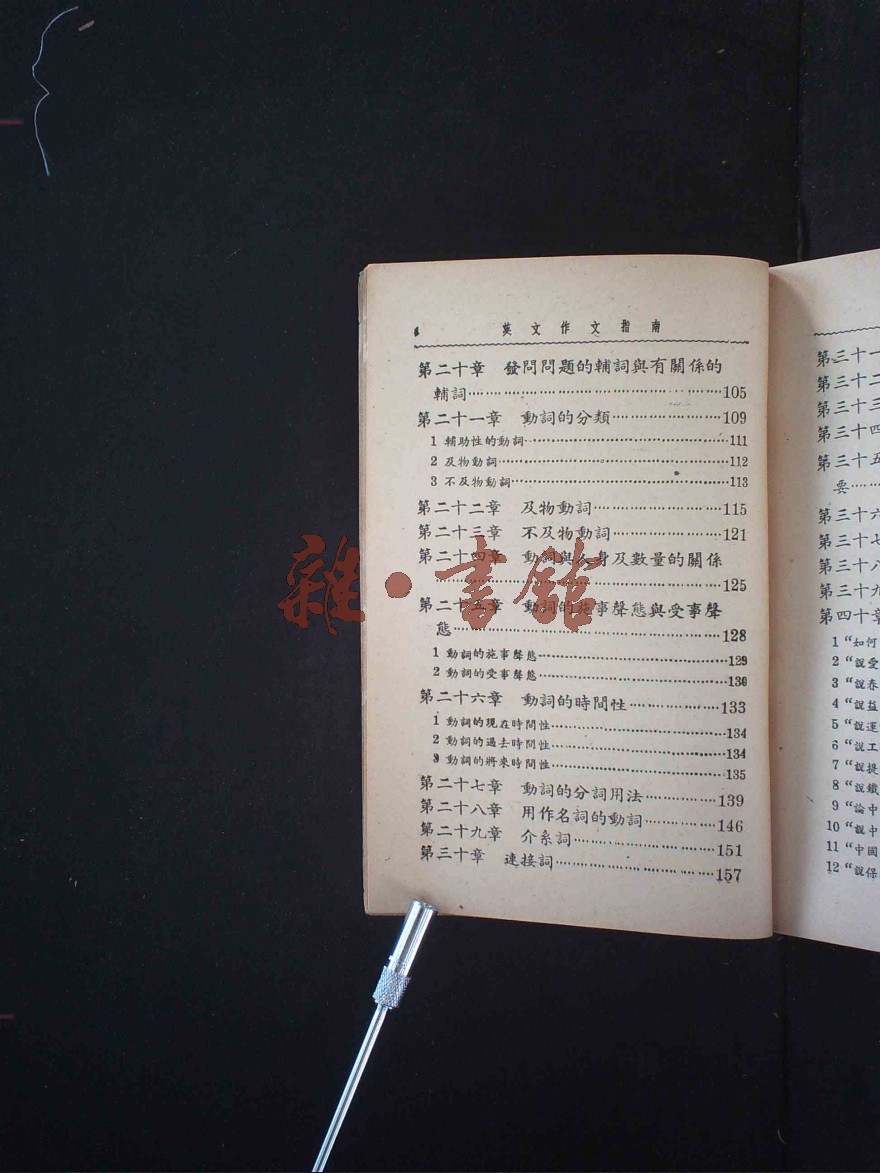 英文作文指南
第二十章 發問問題的輔詞與有關係的
輔詞……………………………105
第二十一章 動詞的分類……………109
1 輔助性的動詞……………………111
2 及物動詞…………………………112
3 不及物動詞………………………113
第二十二章 及物動詞………………115
第二十三章 不及物動詞……………121
第二十四章 動詞與人身及數量的關係
……………………………………125
第二十五章 動詞的施事聲態與受事聲
態…………………………………128
1 動詞的施事聲態…………………129
2 動詞的受事聲態…………………130
第二十六章 動詞的時間性…………133
1 動詞的現在時間性………………134
2 動詞的過去時間性………………134
3 動詞的將來時間性………………135
第二十七章 動詞的分詞用法………139
第二十八章 用作名詞的動詞………146
第二十九章 介系詞…………………151
第三十章 連接詞……………………157
第三十一
第三十二
第三十三
第三十四
第三十五
要……
第三十六
第三十七
第三十八
第三十九
第四十章
1 “如何
2 “說愛
3 “說春
4 “說益
5 “說運
6 “說工
7 “說提
8 “說鐵
9 “論中
10 “說中
11 “中國
12 “說保
雜·書館